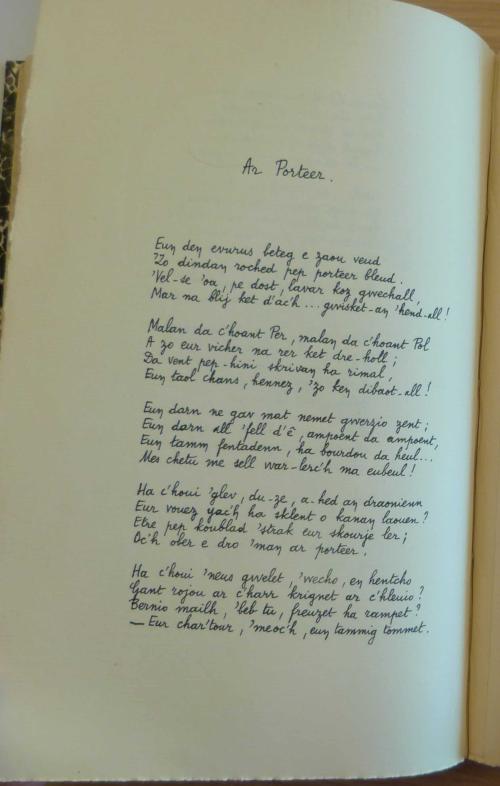 Ar Porteer.
Eun den evurus beteg e zaou veud
'Zo dindan roched pep porteer bleud.
'Vel-se 'oa, pe dost, lavar koz gwechall,
Mar na blij ket d'ac'h ... gwisket-an 'hend-all!
Malan da c'hoant Per, malan da c'hoant Pol
A zo eur vicher na rer ket dre-holl;
Da vent pep-hini skrivan ha rimal,
Eun taol chans, hennez, 'zo ken dibaot-all!
Eun darn ne gav mat nemet gwerzio zent;
Eun darn all 'fell d'ê, ampoent da ampoent,
Eun tamm fentadenn, ha bourdou da heul...
Mes chetu me sell war-lerc'h ma eubeul!
Ha c'houi 'glev, du-ze, a-hed an draonienn
Eur vouez yac'h ha sklent o kanan laouen?
Etre pep koublad 'strak eur skourje ler;
Oc'h ober e dro 'man ar porteer.
Ha c'houi 'neus gwelet, 'wecho, en hentcho
Gant rojou ar c'harr krignet ar c'hleuio?
Bernio mailh, 'leb tu, freuzet ha rampet?
— Eur char'tour, 'meoc'h, eun tammig tommet.